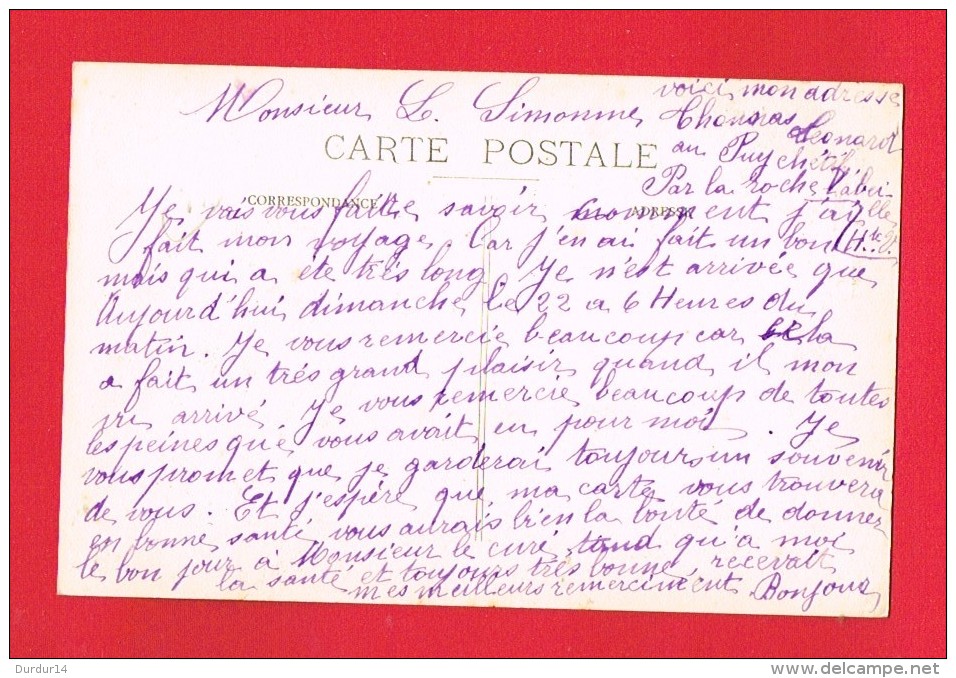 Monsieur L. Simonne
voici mon adresse
Thomas Leonard
au Puy chétif
Par la roche l'abeille
Hte V.
CARTE POSTALE
CORRESPONDANCE
ADRESSE
Je vais vous faitre savoir comment j'ai
fait mon voyage. Car j'en ai fait un bon
mais qui a été très long. Je n'est arrivée que
Aujourd'hui dimanche le 22 a 6 Heures du
matin. Je vous remercie beaucoup car la
a fait un très grand plaisir quand il mon
vu arrivé Je vous remercie beaucoup de toutes
les peines qu'é vous avait eu pour moi. Je
vous promet que je garderai toujours un souvenir
de vous. Et j'espère que ma carte vous trouvera
en bonne santé vous aurais bien la bonté de donner
le bon jour à Monsieur le curé, tand qu'a moi
la santé et toujours très bonne, recevait
mes meilleurs remerciment Bonjour
Durdur14
delcampe.net